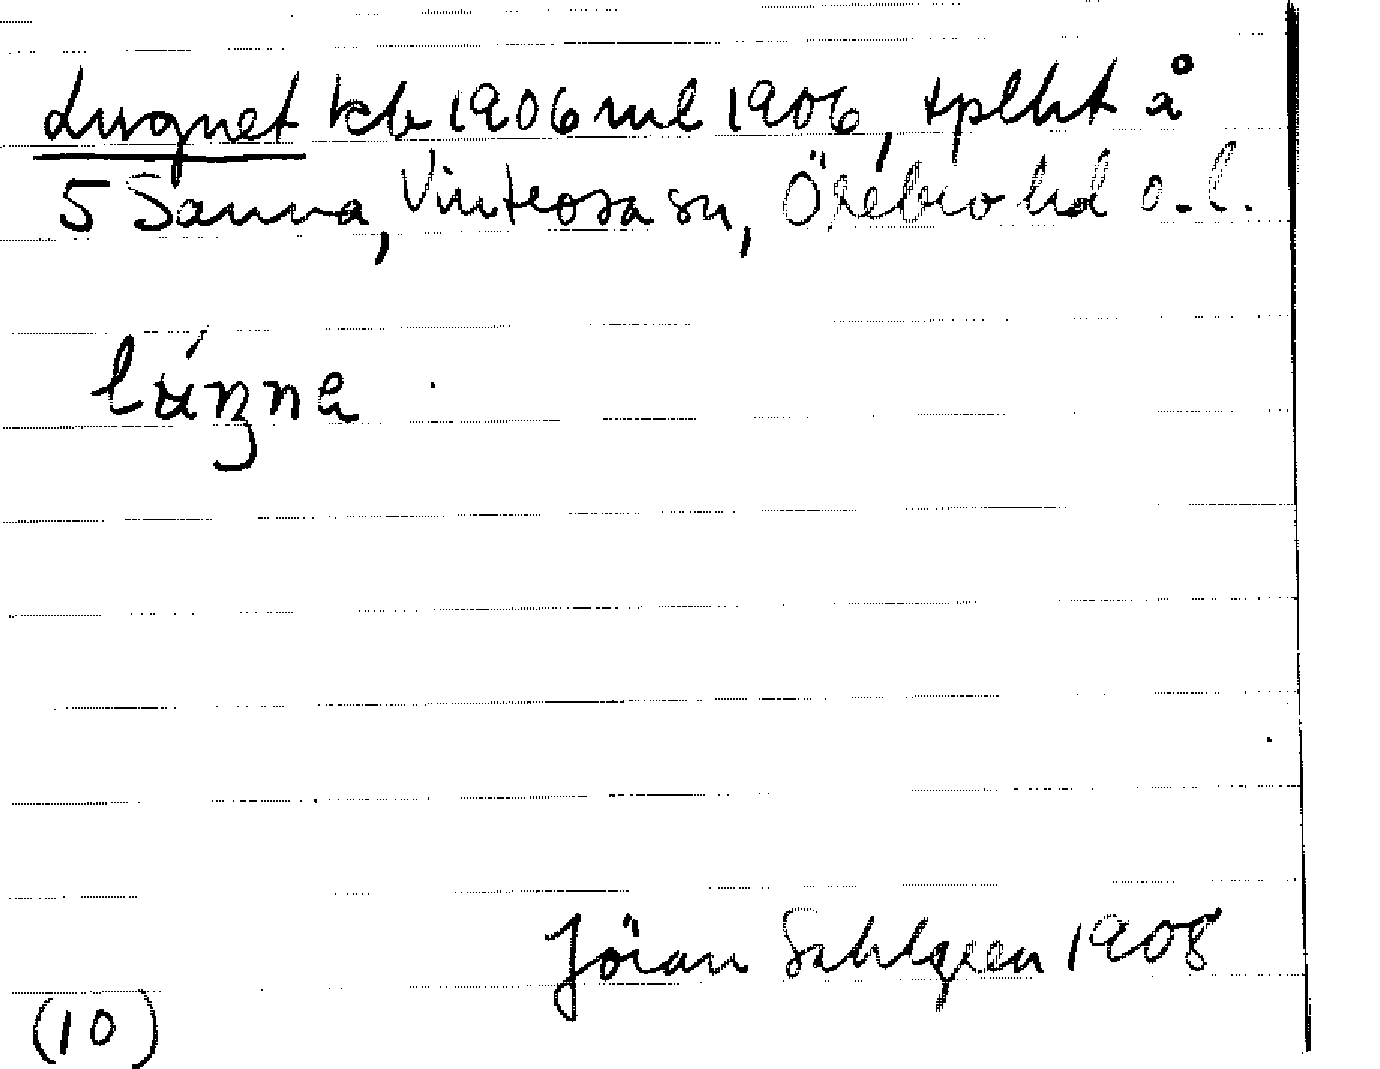 Lugnet kb 1906 ml 1906, tplht å
5 Sanna, Vintrosa sn, Örebro hd o. l.
Jöran Sahlgren 1908
(10)